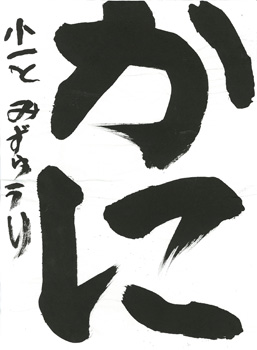 かに
小一と みずゅうり